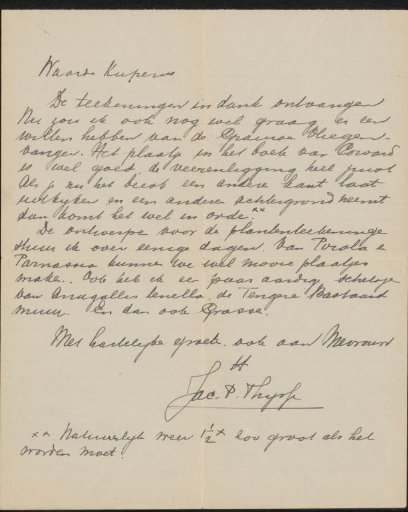 Waarde Kuperus
De teekeningen in dank ontvangen
Nu zou ik ook nog wel graag er een
willen hebben van de Grauwe Vliegen-
vanger. Het plaatje in het boek van Coward
is wel goed, de veerenlegging heel juist
Als je nu het beest een andere kant laat
uitkijken en een anderen achtergrond neemt
dan komt het wel in orde. xx
De ontwerpen voor de plantenteekeningen
stuur ik over eenige dagen. Van Pyrola en
Parnassia kunnen we wel mooie plaatjes
maken. Ook heb ik een paar aardige schetsjes
van Anagallis tenella, de Tengere Bastaard
muur. En dan ook Crassa
Met hartelijke groeten ook aan Mevrouw
Jac. P. Thijsse
xx Natuurlijk weer 1½ x zoo groot als het
worden moet.